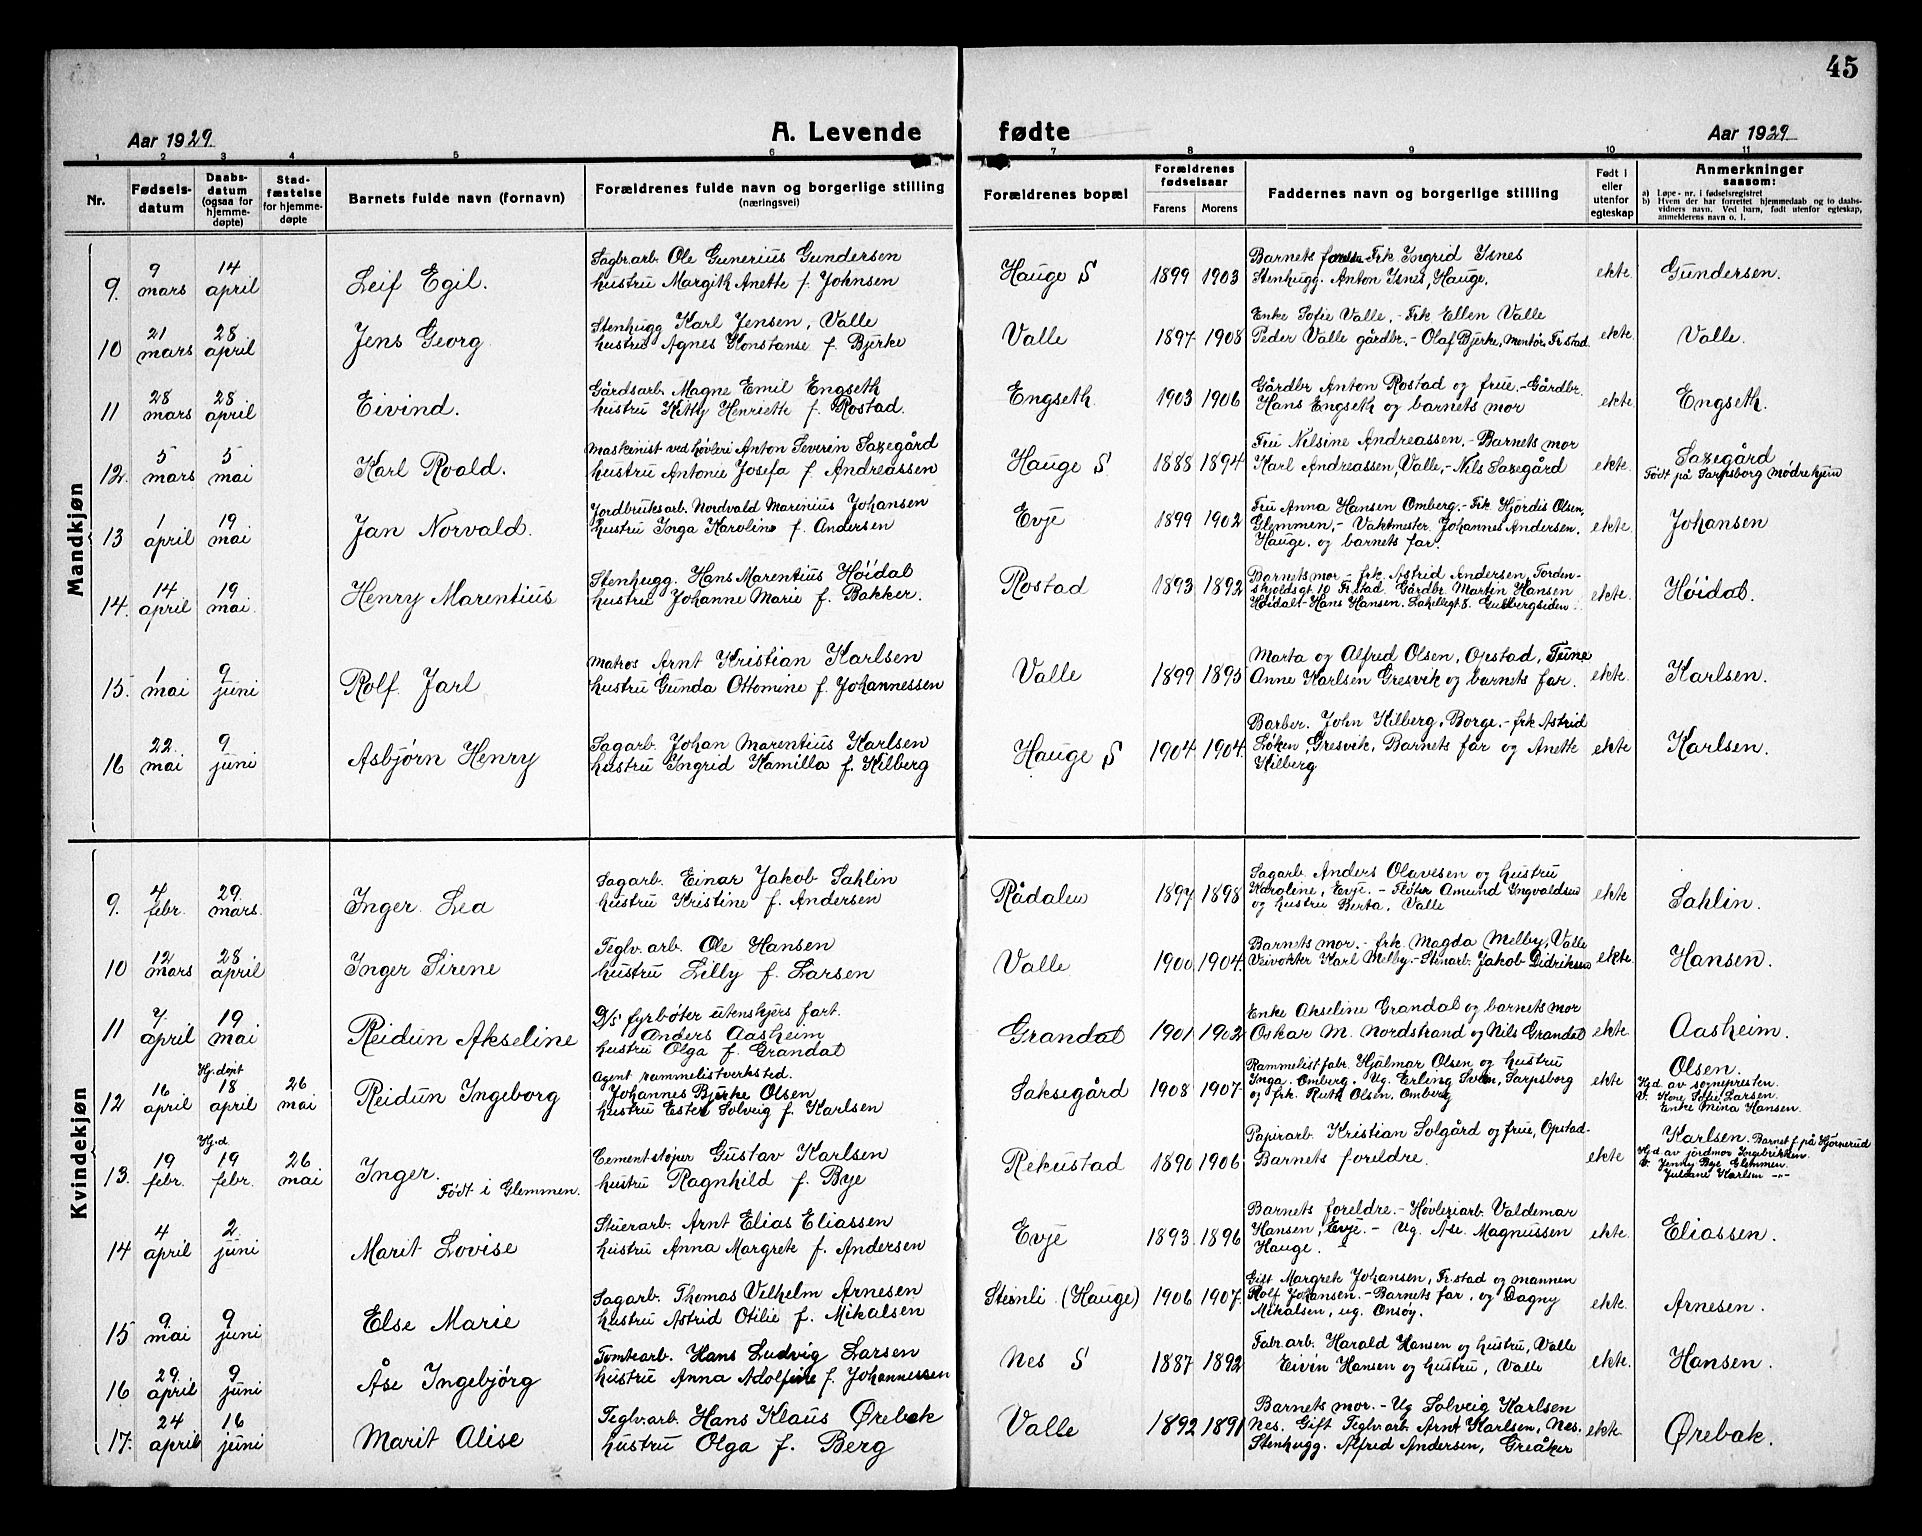 45
Aar 1929.
A. Levende fødte
Aar 1929
1 2 3 4 5 6 7 8 9 10 11
Nr.
Fødselsdatum
Daabsdatum (ogsaa for hjemmedøpte)
Stadfæstelse for hjemmedøpte
Barnets fulde navn (fornavn)
Forældrenes fulde navn og borgerlige stilling (næringsvei)
Forældrenes bopæl
Forældrenes fødselsaar
Farens Morens
Faddernes navn og borgerlige stilling
Født i eller utenfor egteskap
Anmerkninger saasom:
a) Løpe-nr. i fødselsregistret
b) Hvem der har forrettet hjemmedaab og to daabsvidners navn. Ved barn, født utenfor egteskap, anmelderens navn o. l.
Mandkjøn
9. 9 mars 14 april Leif Egil.
Sagbr.arb. Ole Gunerius Gundersen
hustru Margith Anette f. Johnsen
Hauge S 1899 1903
Barnets Frk Ingrid Isnes
Stenhugg. Anton Isnes, Hauge.
ekte Gundersen.
10 21 mars 28 april Jens Georg
Stenhugg Karl Jensen, Valle
hustru Agnes Konstanse f. Bjerke
Valle 1897 1908
Enke Sofie Valle. - Frk Ellen Valle
Peder Valle gårdbr. - Olaf Bjerke, Montør, Fr.stad
ekte. Valle.
11 28 mars 28 april Eivind.
Gårdsarb. Magne Emil Engseth
hustru Kitty Henriette f. Rostad.
Engseth 1903 1906
Gårdbr Anton Rostad og frue. - Gårdbr.
Hans Engseth og barnets mor
ekte Engseth.
12. 5 mars 5 mai Karl Roald.
Maskinist ved høvleri Anton Severin Saxegård
hustru Antonie Josefa f. Andreassen
Hauge S 1888 1894
Fru Nilsine Andreassen. - Barnets mor
Karl Andreassen, Valle, - Nils Saxegård
ekte Saxegård
Født på Sarpsborg Mødrehjem
13 1 april 19 mai Jan Norvald.
Jordbruksarb. Nordvald Marenius Johansen
hustru Inga Karoline f. Andersen
Evje 1899 1902
Fru Anna Hansen Omberg. - Frk Hjördis Olsen,
Glemmen, - Vaktmester Johannes Andersen.
Hauge. og barnets far.
ekte Johansen
14. 14 april 19 mai. Henry Marentius
Stenhugg. Hans Marentius Höidal
hustru Johanne Marie f. Bakker.
Rostad 1893 1892
Barnets mor - frk. Astrid Andersen, Torden-
skjoldsgt 10 Fr.stad. Gårdbr. Martin Hansen
Höidal - Hans Hansen.
ekte. Höidal.
15. 1 mai 9 juni Rolf Jarl
Matros Arnt Kristian Karlsen
hustru Gunda Ottomine f. Johannessen
Valle 1899 1895
Marta og Alfred Olsen, Opstad, Tune
Anne Karlsen Gresvik og barnets far.
ekte. Karlsen.
16 22. mai 9 juni Asbjørn Henry
Sagarb. Johan Marentius Karlsen
hustru Ingrid Kamilla f. Kilberg
Hauge S 1904 1904.
Barber. John Kilberg, Borge. - frk Astrid
Løken, Gresvik, Barnets far og Anette
Kilberg
ekte Karlsen.
Kvindekjøn
9. 4 febr. 29. mars. Inger Lea
Sagarb. Einar Jakob Sahlin
hustru Kristine f. Andersen
Rådalen 1897 1898
Sagarb. Anders Olavesen og hustru
Karoline, Evje. - Fløter Amund Ingvaldsen
og hustru Berta, Valle
ekte Sahlin.
10 12 mars 28 april Inger Sirene
Teglv.arb. Ole Hansen
hustru Lilly f. Larsen
Valle 1900 1904.
Barnets mor. - frk. Magda Melby, Valle
Veivokter Karl Melby. - Stenarb. Jakob Didriksen
ekte. Hansen.
11 7. april 19 mai Reidun Akseline
D/S fyrbøter utenskjers fart.
Anders Aasheim
hustru Olga f. Grandal
Grandal 1901 1902
Enke Akseline Grandal og barnets mor
Oskar M. Nordstrand og Nils Grandal
ekte. Aasheim.
12 16 april Hj.døpt 18 april 26 mai Reidun Ingeborg
Agent rammelistverksted.
Johannes Bjerke Olsen
hustru Ester Solveig f. Karlsen
Saksegård 1908 1907
Rammelistfabr Hjalmar Olsen og hustru
Inga. Omberg. Ug. Erling Sarpsborg
og frk. Ruth Olsen. Omberg
ekte Olsen.
Hjd. av sognepresten.
V. Kone Sofie Larsen.
Enke Mina Hansen.
13. 19 febr. Hj.d. 19 febr. 26 mai Inger.
Født i Glemmen.
Cementstøper Gustav Karlsen
hustru Ragnhild f. Bye
Rekustad 1890 1906
Papirarb. Kristian Solgård og frue, Opstad.
Barnets foreldre.
ekte Karlsen. Barnet f. på Hjørnerud
Hjd. av jordmor Ingebriktsen.
V. Jenny Bye Glemmen.
Juliane Karlsen -"-
14 4 april 2 juni Marit Lovise
Stuerarb. Arnt Elias Eliassen
hustru Anna Margrete f. Andersen
Evje 1893 1896
Barnets foreldre. - Høvleriarb. Valdemar
Hansen, Evje. - Ug. Åse Magnussen
Hauge.
ekte. Eliassen.
15 9. mai 9 juni Else Marie
Sagarb. Thomas Vilhelm Arnesen
hustru Astrid Otilie f. Mikalsen
Stenli (Hauge) 1906 1907.
Gift Margrete Johansen, Fr.stad og mannen
Rolf Johansen. - Barnets far, og Dagny
Mikalsen, ug. Onsøy.
ekte. Arnesen.
16 29. april 9 juni Åse Ingebjörg
Tomtearb. Hans Ludvig Larsen
hustru Anna Adolfine f. Johannessen
Nes S 1887 1892
Fabr.arb. Harald Hansen og hustru, Valle
Eivin Hansen og hustru, Valle
ekte. Hansen.
17. 24 april 16 juni Marit Alise
Teglv.arb. Hans Klaus Ørebak
hustru Olga f. Berg
Valle 1892 1891
Barnets mor. - Ug Solveig Karlsen
Nes. Gift Teglv.arb. Arnt Karlsen, Nes.
Stenhugg. Alfred Andersen, Greåker
ekte. Ørebak.